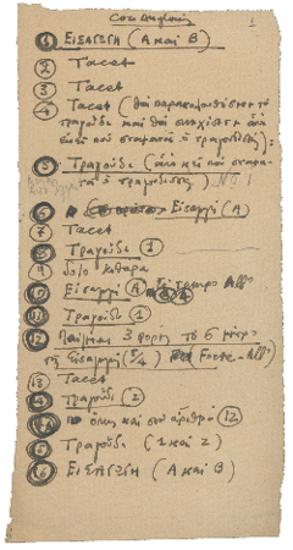 Cor Anglais
1
1 ΕΙΣΑΓΩΓΗ (Α και Β)
2 Tacet
3 Tacet
4 Tacet (θα παρακολουθήσετε το
τραγούδι και θα συνεχίσετε από
εκεί που σταματάει ο τραγουδιστής):
5 Τραγούδι (από κεί που σταμα-
τά ο τραγουδιστής) No 1
6 Εισαγωγή (Α)
7 Tacet
8 Τραγούδι 1
9 Σόλο κιθάρα
10 Εισαγωγή Α
11 Τραγούδι 1
12 Παίρνεις 3 φορές το 6 μέτρο
της Εισαγωγής (5/4) (Forte - Allº)
13 Tacet
14 Τραγούδι 2
όπως και στο αριθμό 12
15 Τραγούδι (1 και 2)
16 ΕΙΣΑΓΩΓΗ (Α και Β)